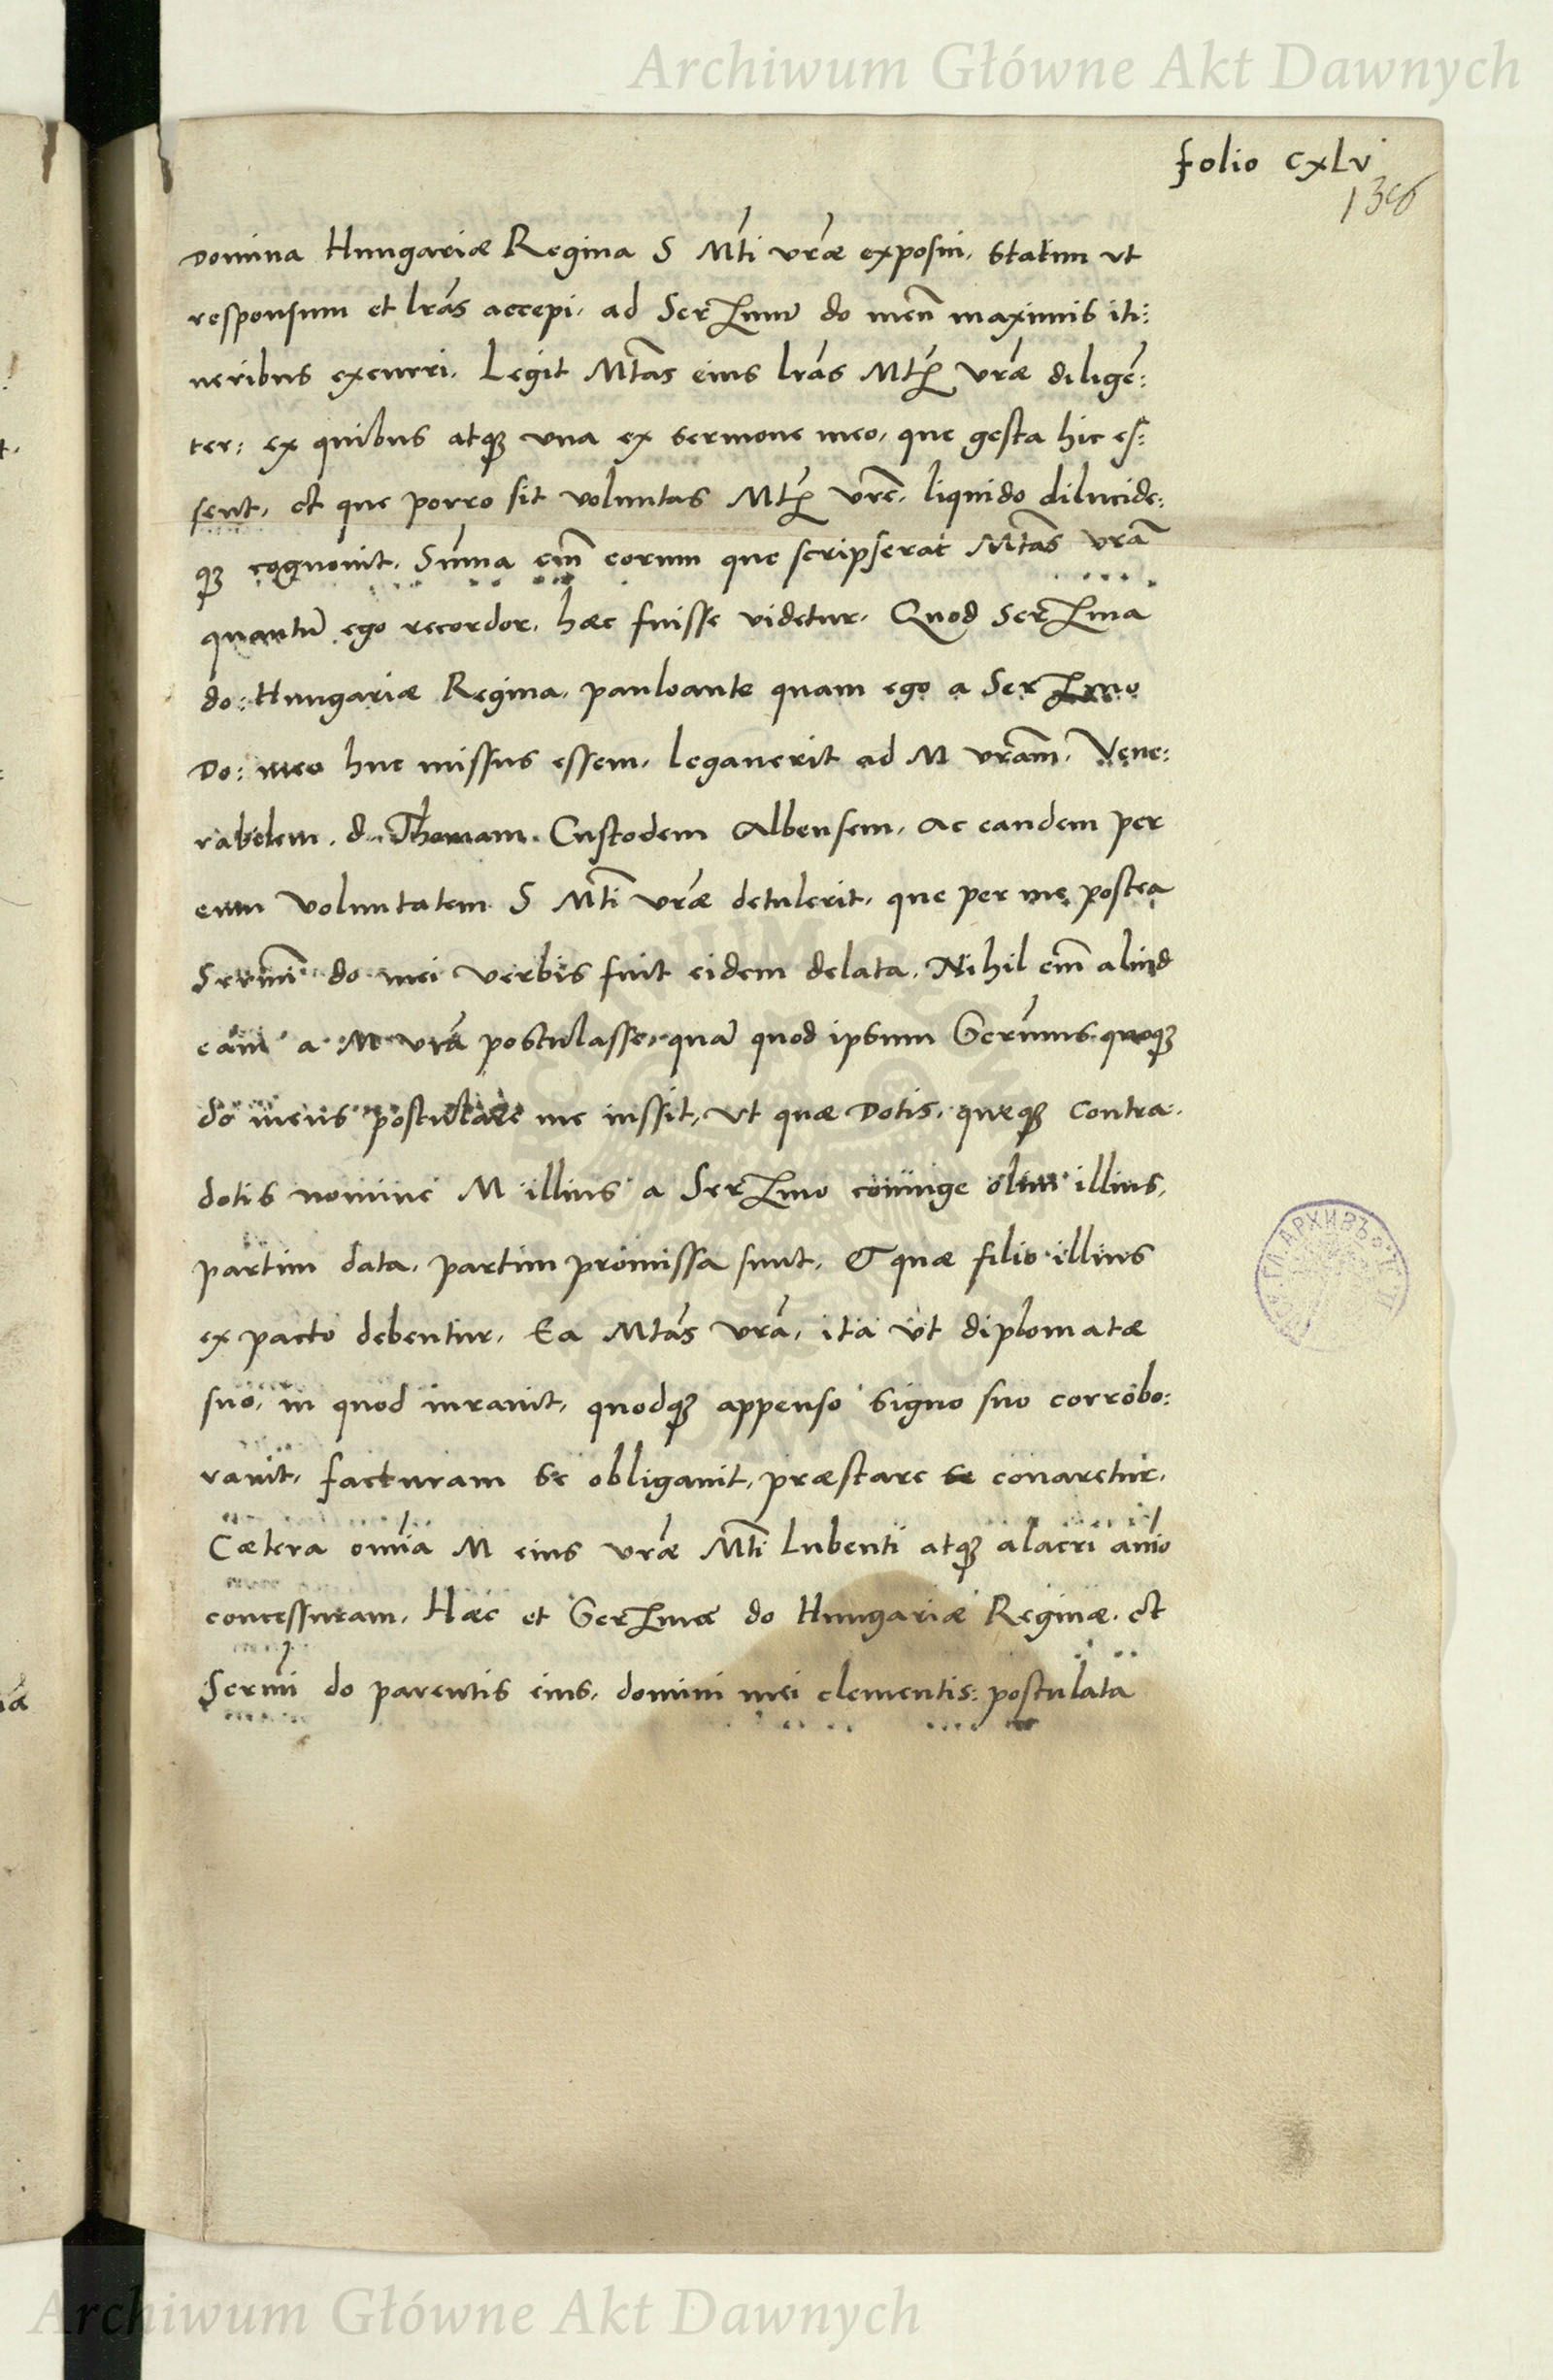 Archiwum Główne Akt Dawnych
folio cxlv
136
Domina Hungariæ Regina S Mti vræ exposui, statim vt
responsum et lras accepi, ad Sermum do meum maximis iti:
neribus excurri. Legit Mtas eius lras Mtis vræ diligen:
ter: ex quibus atq3 vna ex sermone meo, que gesta hic es:
sent, et que porro sit voluntas Mtis vre, liquido dilucide:
q3 cognouit. Suma em eorum que scripserat Mtas vra
quantu ego recordor, hæc fuisse videtur. Quod Serma
do: Hungariæ Regina, pauloante quam ego a Sermo
Do: meo huc missus essem, legauerit ad M vram, Vene:
rabilem. d. Thomam. Custodem Albensem, Ac eandem per
eum voluntatem S Mti vræ detulerit, que per me postea
Sermi do mei verbis fuit eidem delata. Nihil em aliud
eam a M vra postulasse, qua quod ipsum Sermus quoq3
do meus postulare me iussit, vt quæ Dotis, queq3 contra.
dotis nomine M illius a Sermo coniuge olim illius,
partim data, partim promissa sunt, Et quæ filio illius
ex pacto debentur, Ea Mtas vra, ita vt diplomatæ
suo, in quod iurauit, quodq3 appenso signo suo corrobo:
rauit, facturam se obligauit, præstare se conaretur.
Cætera omia M eius vræ Mti lubenti atq3 alacri animo
concessuram. Hæc et Sermæ do Hungariæ Reginæ. et
Sermi do parentis eius, domini mei clementis: postulata
АРХИВЪ
Archiwum Główne Akt Dawnych